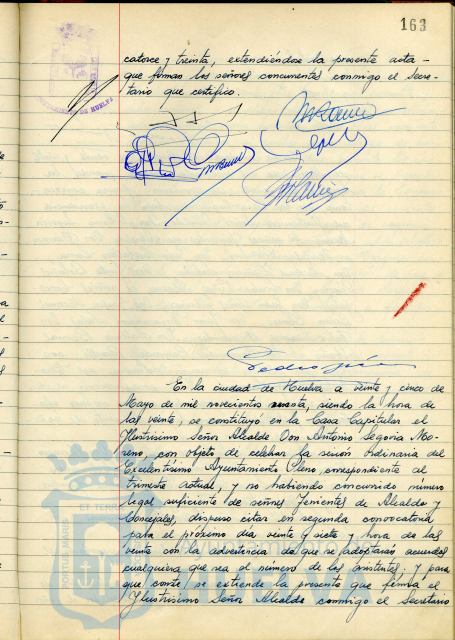 163
catorce y treinta, extendiéndose la presente acta -
que firman los señores concurrentes conmigo el Secre-
tario que certifico.
En la ciudad de Huelva a veinte y cinco de
Mayo de mil novecientos sesenta, siendo la hora de
las veinte, se constituyó en la Casa Capitular el
Ilustrísimo Señor Alcalde Don Antonio Segovia Mo-
reno, con objeto de celebrar la sesión ordinaria del
Excelentísimo Ayuntamiento Pleno, correspondiente al
trimestre actual, y no habiendo concurrido número
legal suficiente de señores Tenientes de Alcalde y
Concejales, dispuso citar en segunda convocatoria
para el próximo día veinte y siete y hora de las
veinte con la advertencia de que se adoptarán acuerdos
cualquiera que sea el número de los asistentes. Y para
que conste se extiende la presente que firma el
Ilustrísimo Señor Alcalde conmigo el Secretario